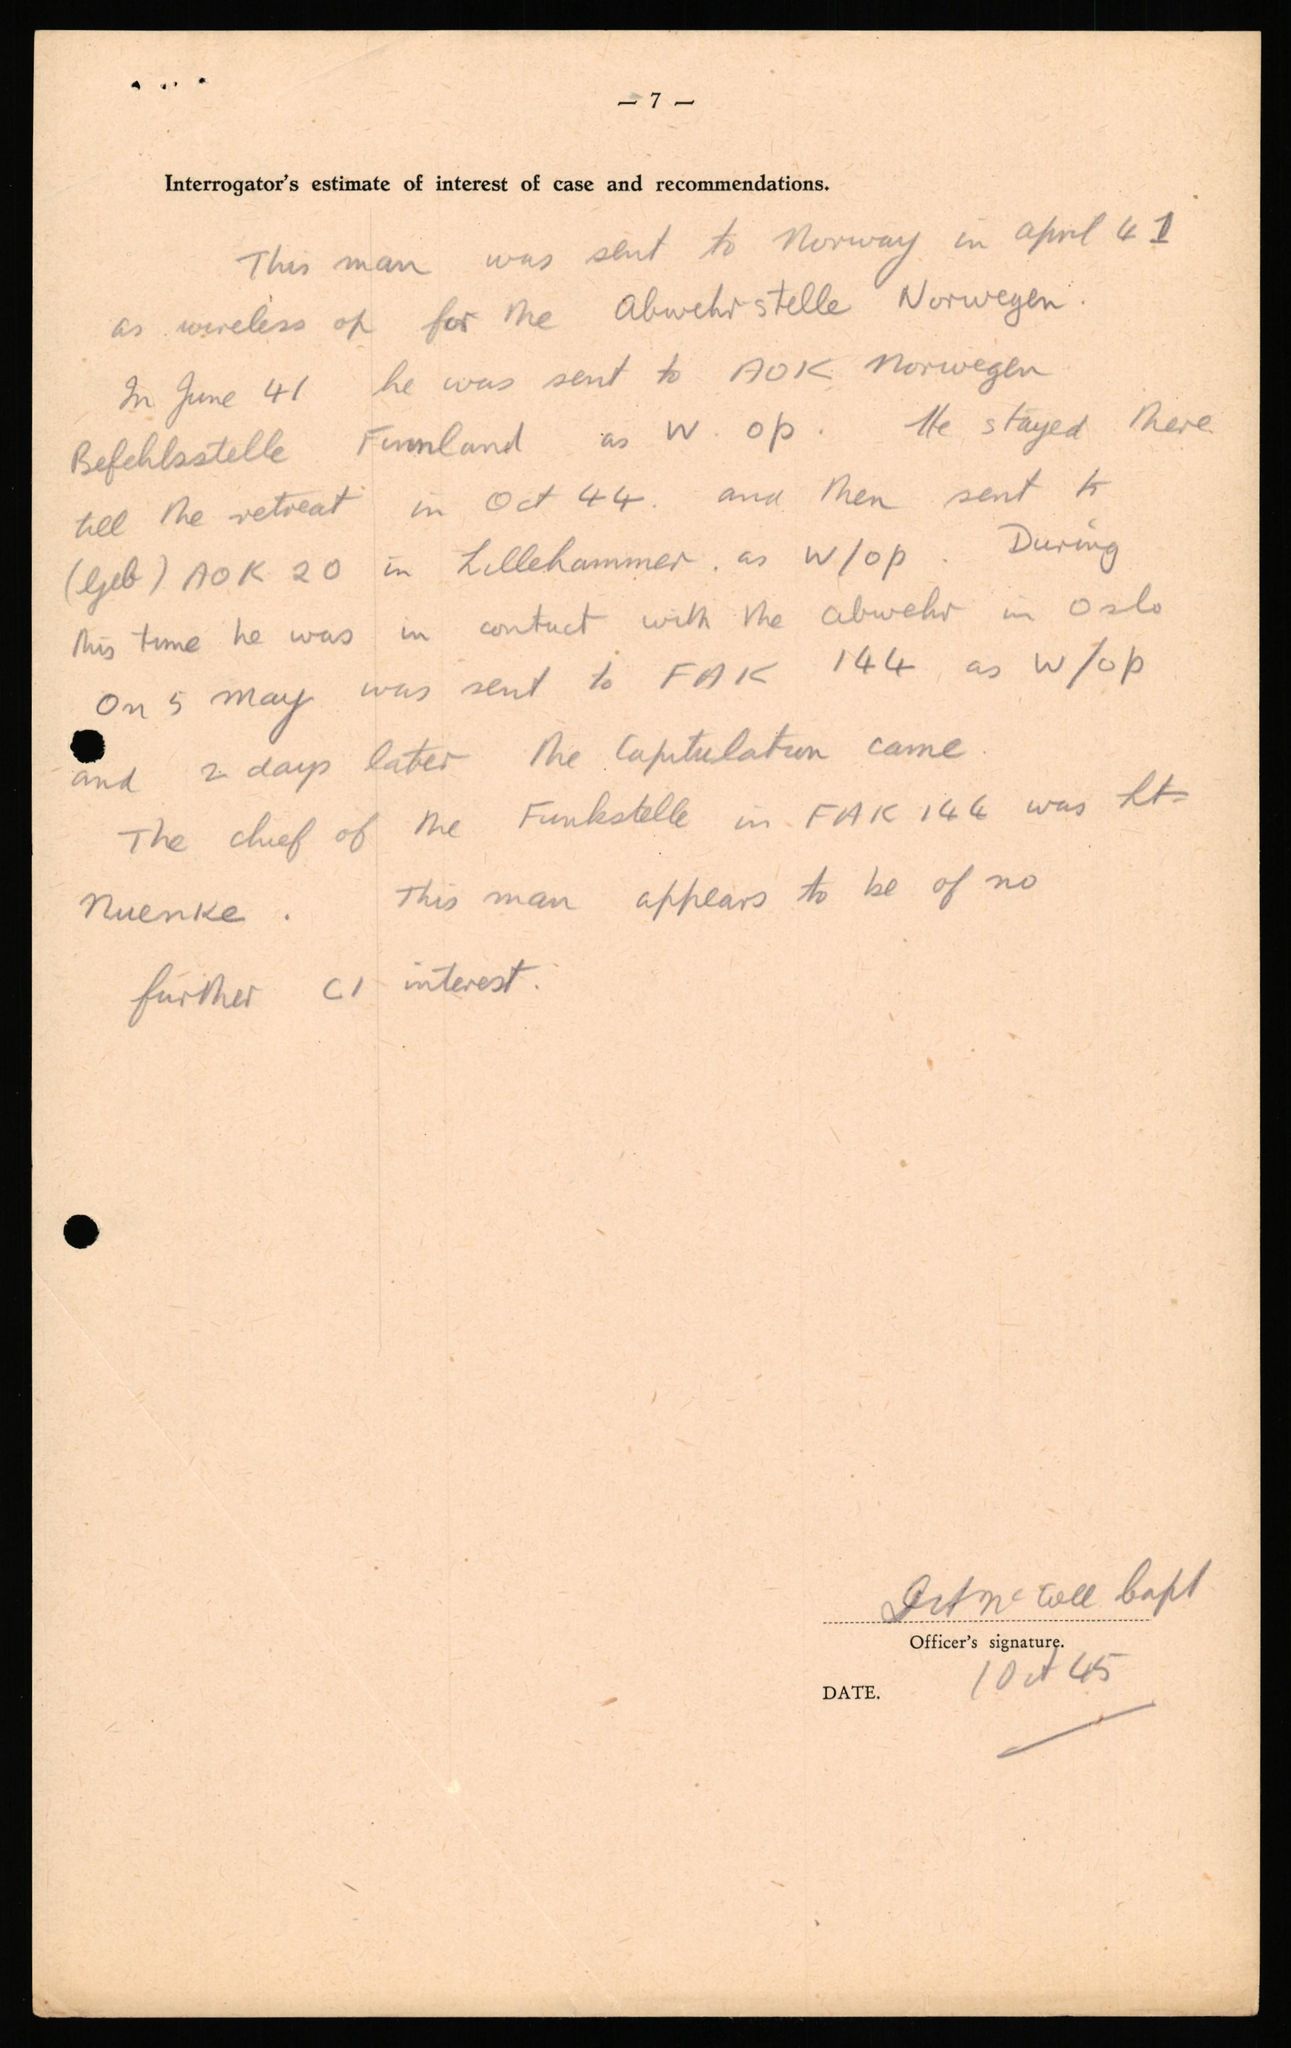 — 7 —
Interrogator's estimate of interest of case and recommendations.
This man was sent to Norway in april 41
as wireless op for the Abwehrstelle Norwegen.
In June 41 he was sent to AOK Norwegen
Befehlsstelle Finnland as W. op. He stayed there
till the retreat in Oct 44. and then sent to
(Geb) AOK 20 in Lillehammer. as W/op. During
this time he was in contact with the abwehr in Oslo
On 5 May was sent to FAK 144 as W/op
and 2 days later the Capitulation came.
The chief of the Funkstelle in FAK 144 was Lt
Nuenke. This man appears to be of no
further CI interest.
Capt
Officer's signature.
DATE. 1 Oct 45